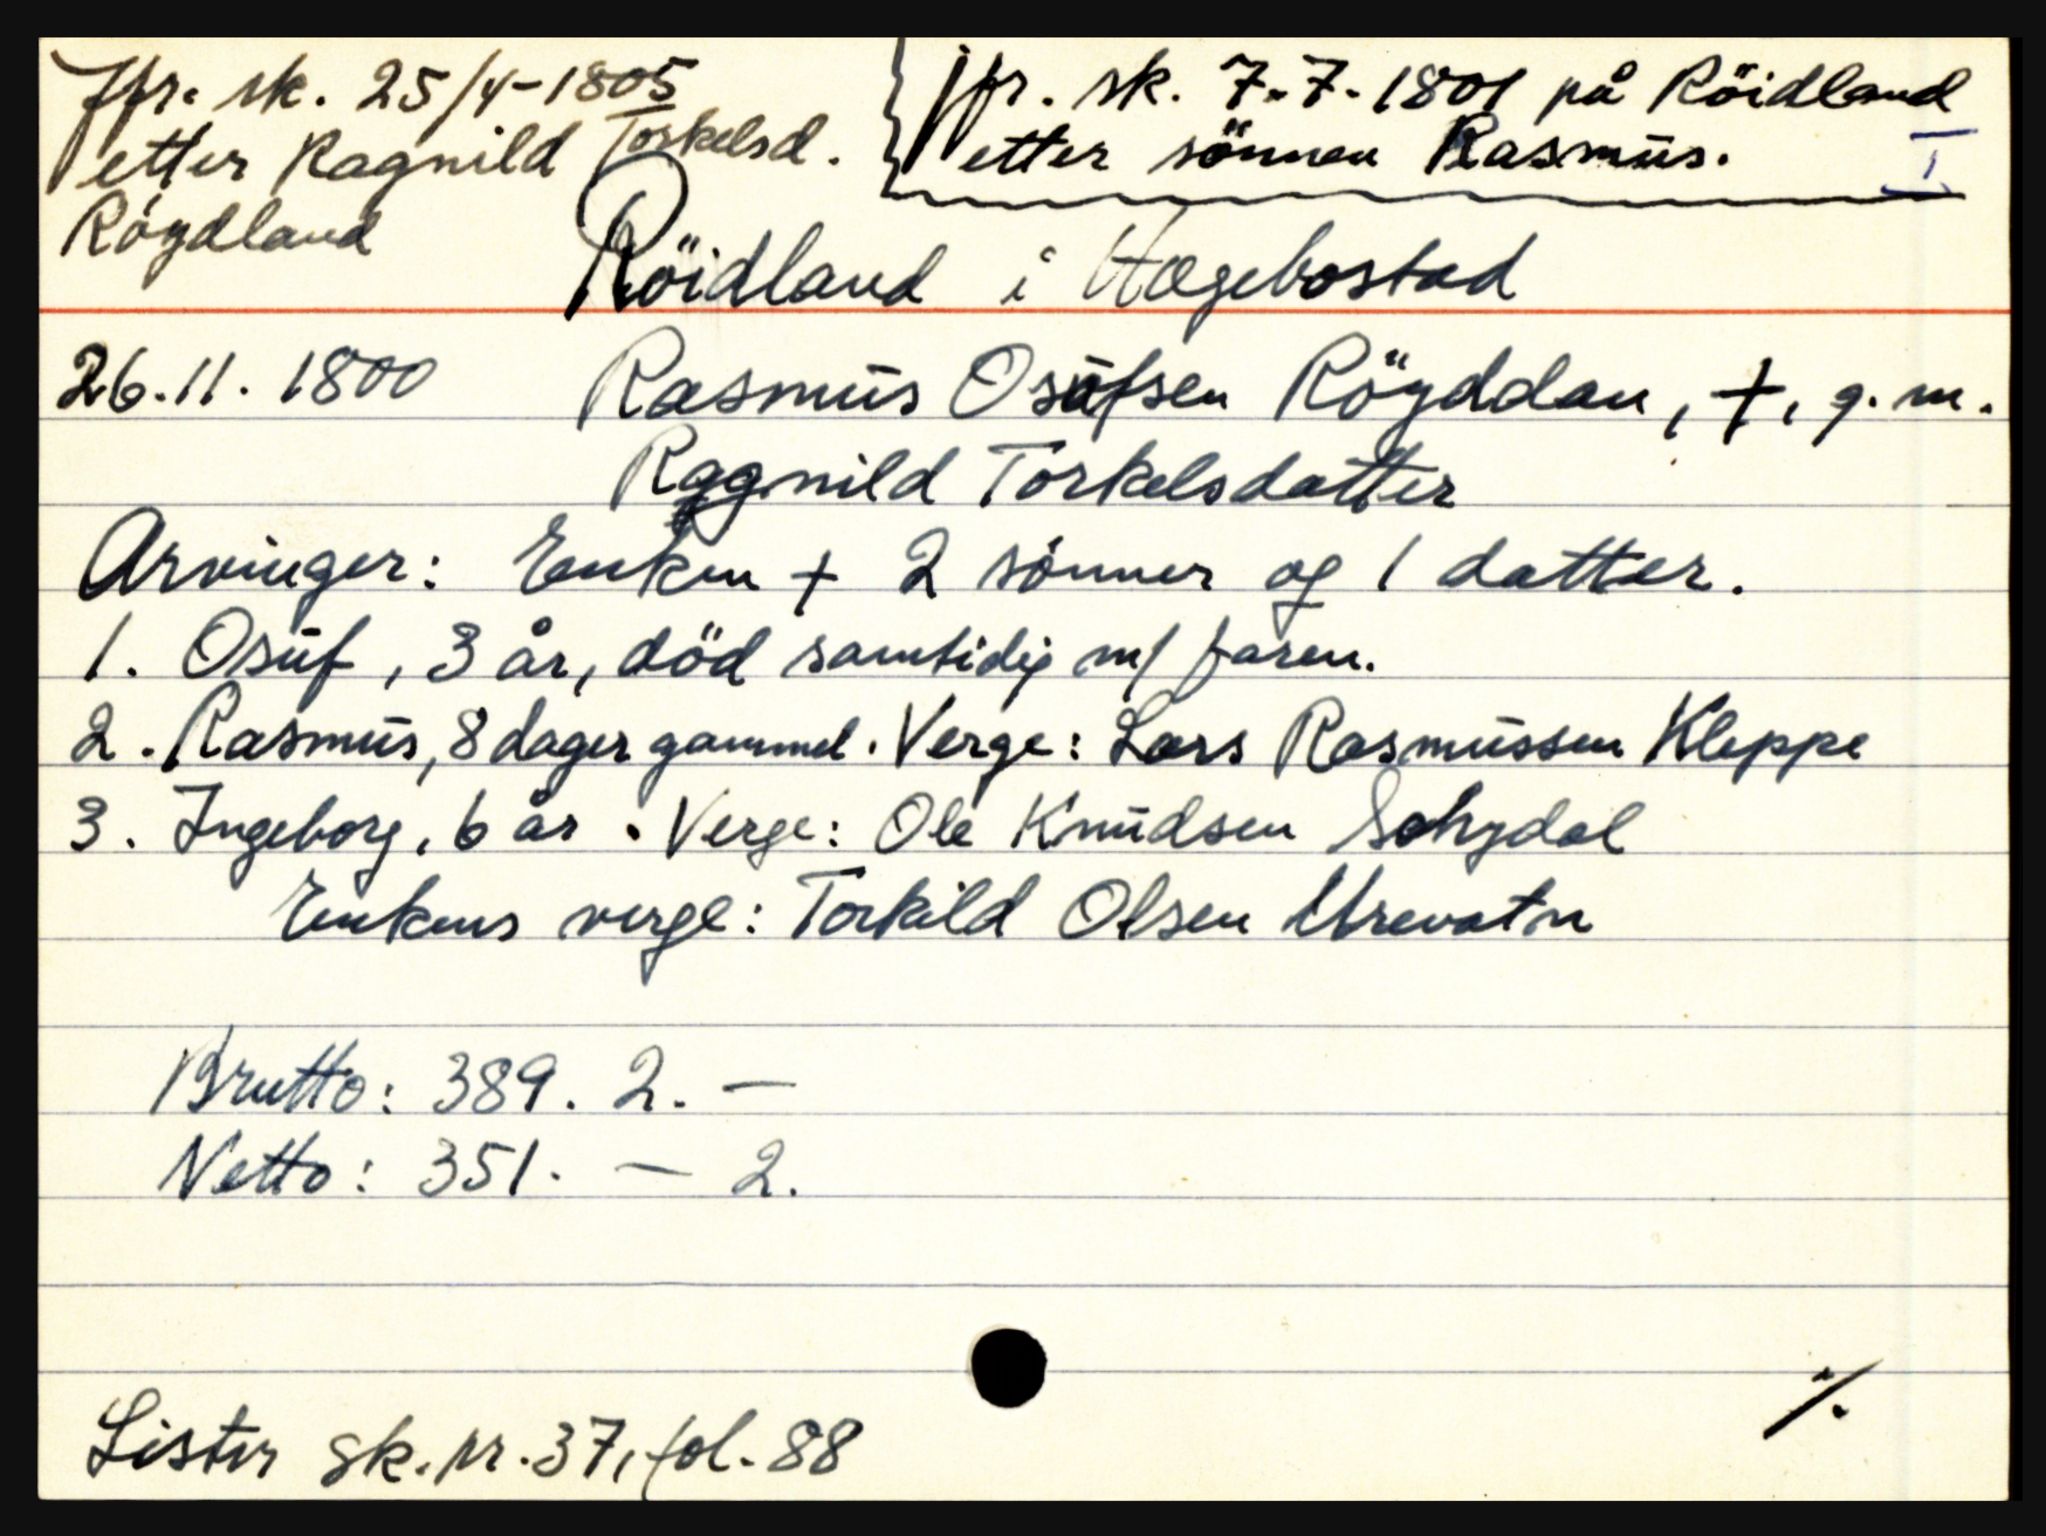 Jfr. sk. 25/4-1805
etter Ragnild Torkelsd.
Röydland
jfr. sk. 7-7-1801 på Röidland
etter sönnen Rasmus.
I
Röidland i Hægebostad
26.11.1800 Rasmus Osufsen Röyddan, †, g.m.
Ragnild Torkelsdatter
Arvinger: Enken + 2 sönner og 1 datter.
1. Osuf, 3 år, död samtidig m/ faren.
2. Rasmus, 8 dager gammel. Verge: Lars Rasmussen Kleppe
3. Ingeborg, 6 år. Verge: Ole Knudsen
Enkens verge: Torkild Olsen Urevatn
Brutto: 389. 2. —
Netto: 351. — 2.
Lister sk.nr. 37, fol. 88